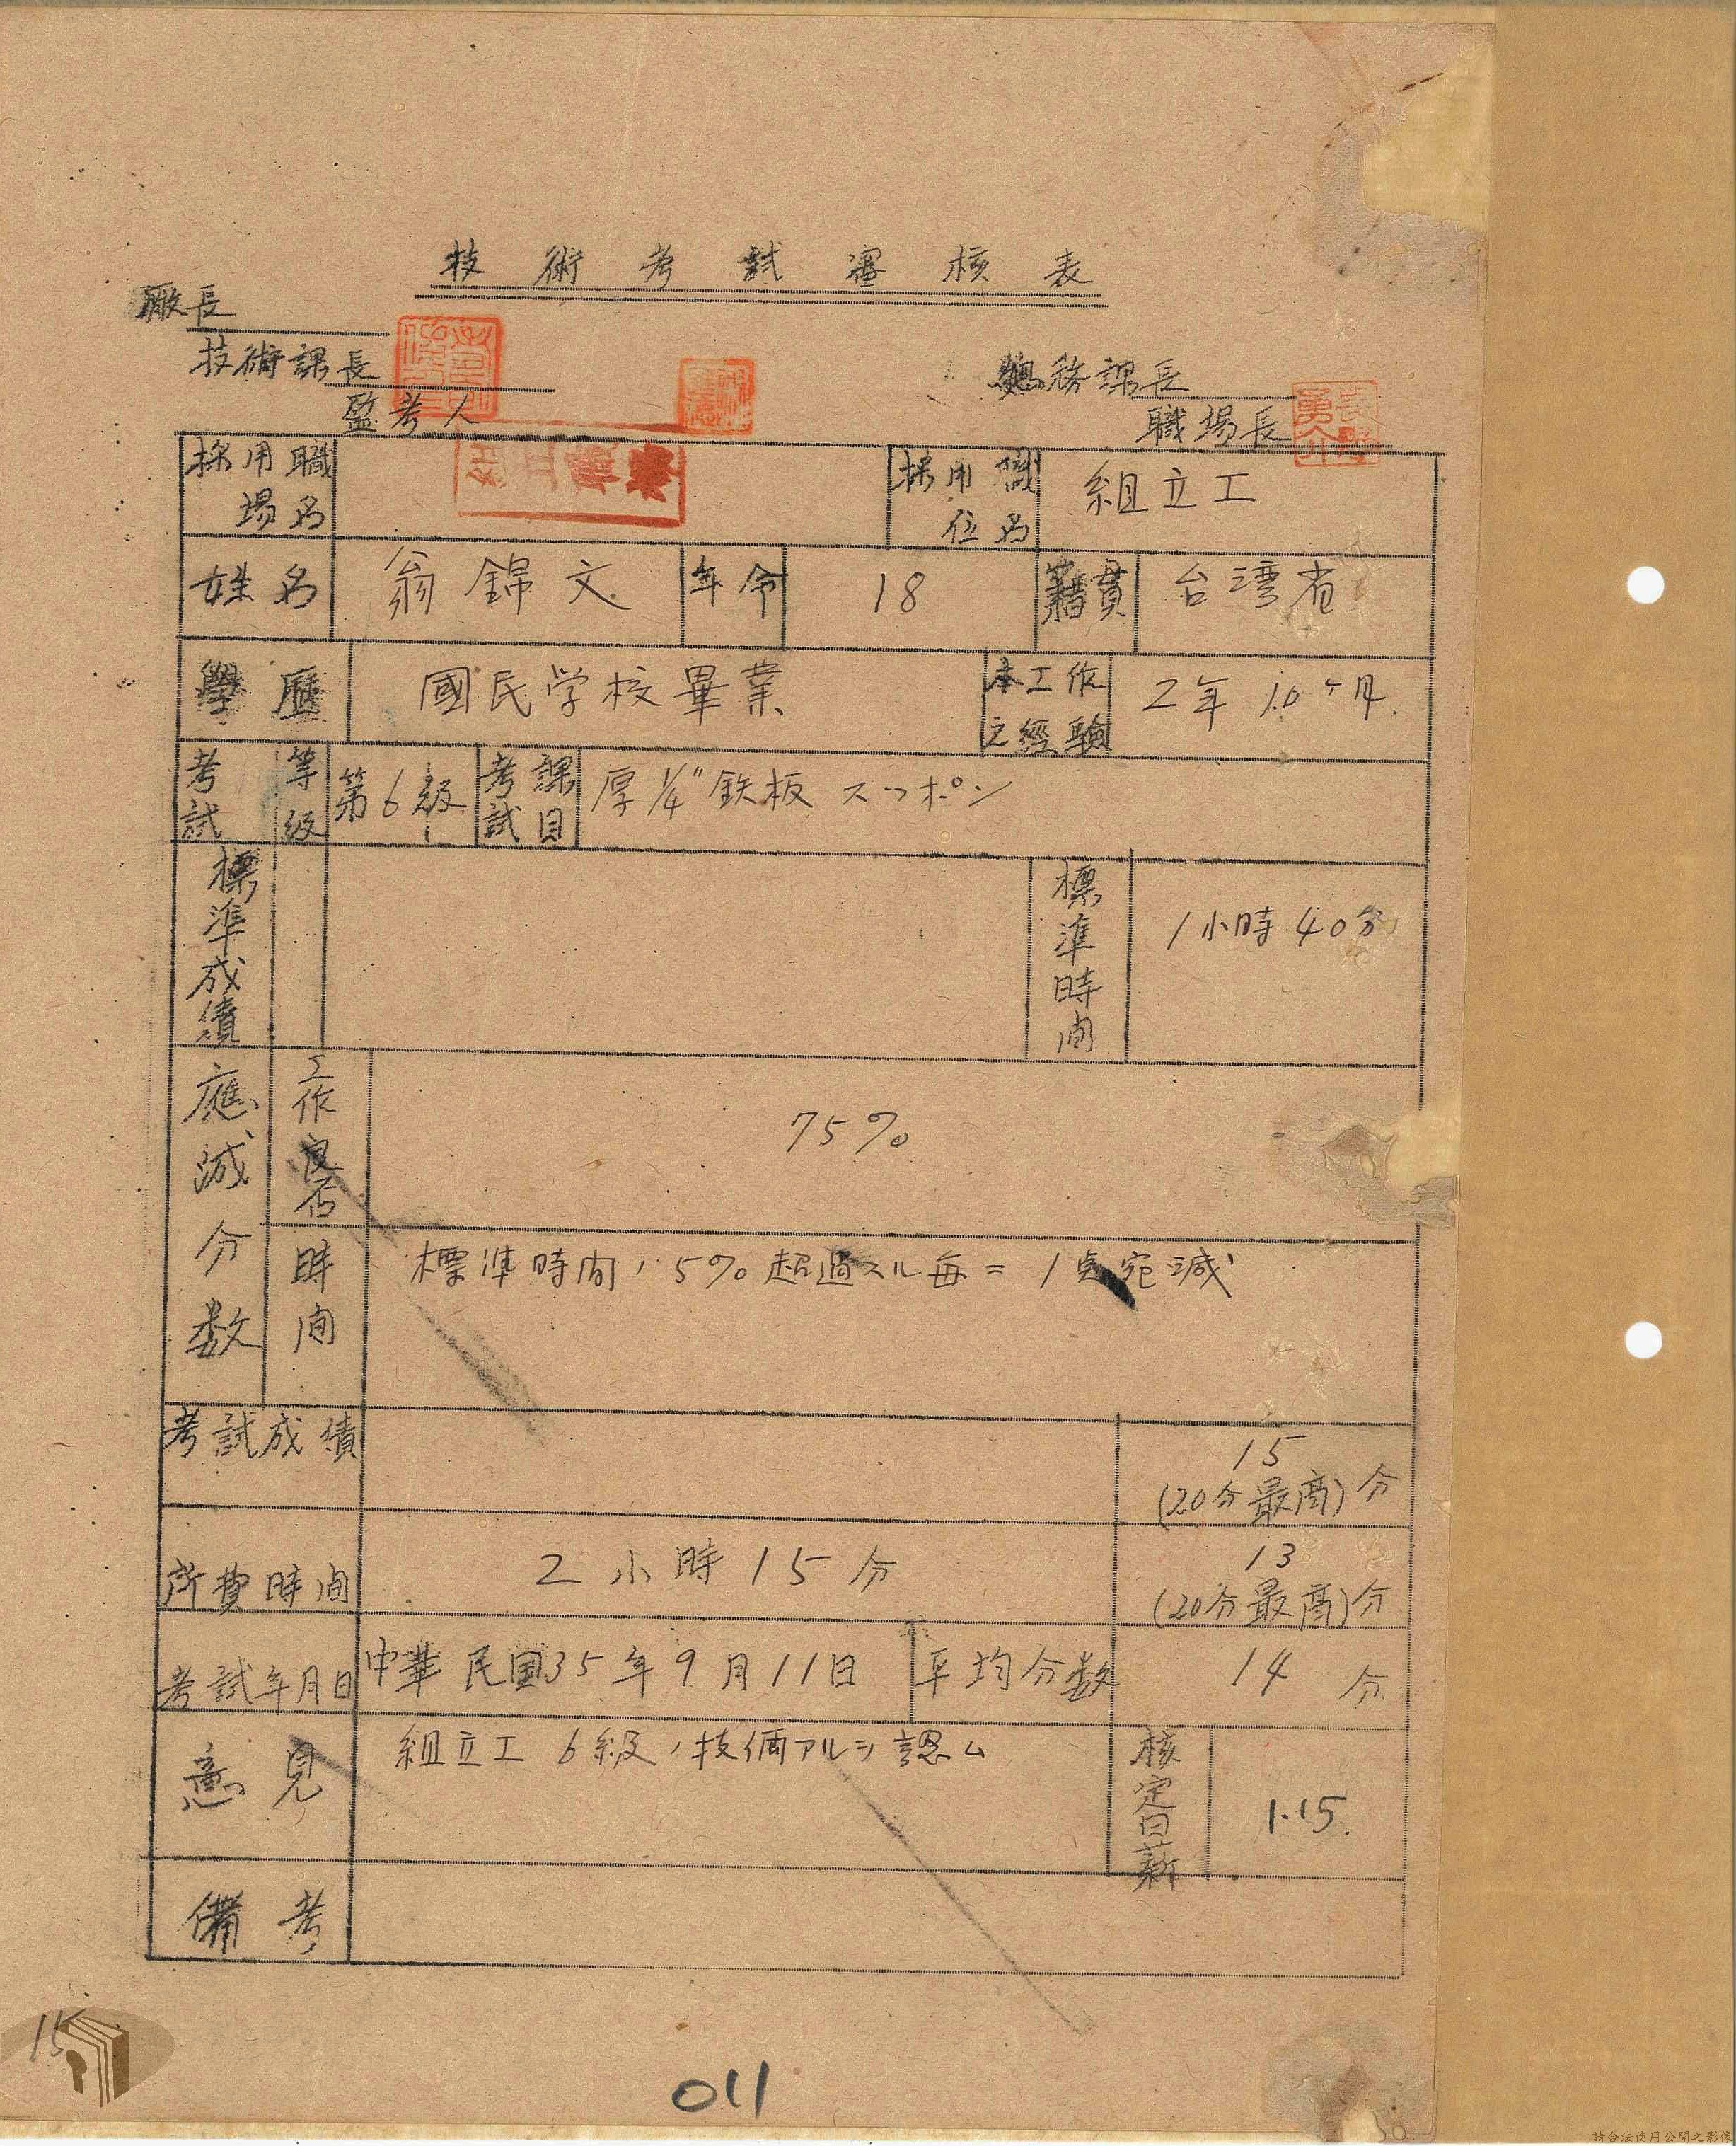 技術考試審核表
廠長
技術課長
總務課長
監考人
職場長
採用職場名
採用職位名 組立工
姓名 翁錦文 年令 18 籍貫 台湾省
學歷 國民学校畢業 本工作之經驗 2年10ヶ月.
考試等級 第6級 考試課目 厚1/4"鉄板スッポン
標準成績 標準時间 1小時40分
應減分数 工作良否 75%
時间 標準時間ノ5%超過スル毎ニ1点宛減
考試成績 15 (20分最高)分
所費時间 2小時15分 13 (20分最高)分
考試年月日 中華民国35年9月11日 平均分数 14分
意見 組立工 6級ノ技倆アルヲ認ム 核定日薪 1.15.
備考
15
011
請合法使用公開之影像